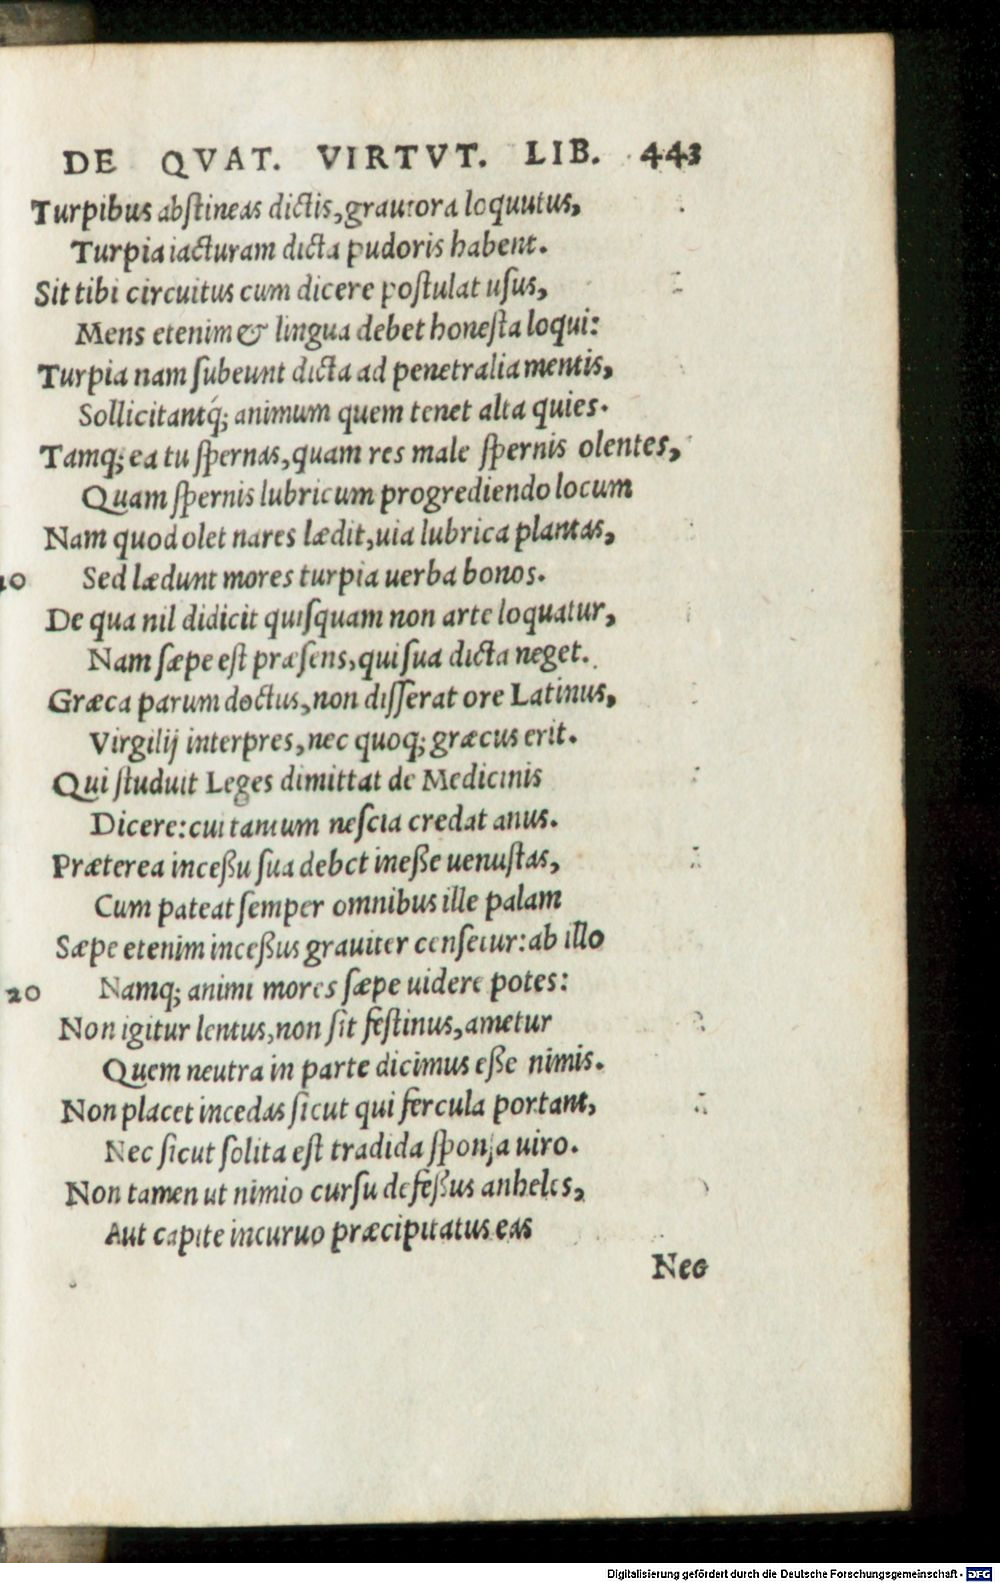 DE QVAT. VIRTVT. LIB. 443
Turpibus abstineas dictis, grauiora loquutus,
Turpia iacturam dicta pudoris habent.
Sit tibi circuitus cum dicere postulat usus,
Mens etenim & lingua debet honesta loqui:
Turpia nam subeunt dicta ad penetralia mentis,
Sollicitantq́; animum quem tenet alta quies.
Tamq; ea tu spernas, quam res male spernis olentes,
Quam spernis lubricum progrediendo locum
Nam quod olet nares lædit, uia lubrica plantas,
10 Sed lædunt mores turpia uerba bonos.
De qua nil didicit quisquam non arte loquatur,
Nam sæpe est præsens, qui sua dicta neget.
Græca parum doctus, non disserat ore Latinus,
Virgilij interpres, nec quoq; græcus erit.
Qui studuit Leges dimittat de Medicinis
Dicere: cui tantum nescia credat anus.
Præterea inceßu sua debet ineße uenustas,
Cum pateat semper omnibus ille palam
Sæpe etenim inceßus grauiter censetur: ab illo
20 Namq; animi mores sæpe uidere potes:
Non igitur lentus, non sit festinus, ametur
Quem neutra in parte dicimus eße nimis.
Non placet incedas sicut qui fercula portant,
Nec sicut solita est tradida sponsa uiro.
Non tamen ut nimio cursu defeßus anheles,
Aut capite incuruo præcipitatus eas
Nec
Digitalisierung gefördert durch die Deutsche Forschungsgemeinschaft - DFG